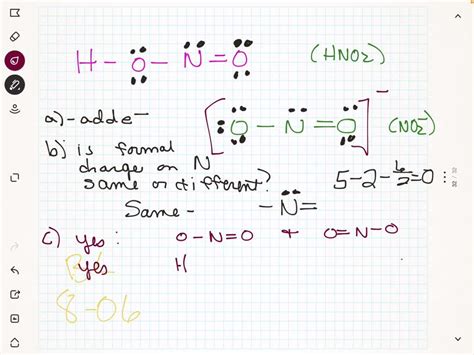 H-O-N=O (HNO2)
a) - adde-
[O-N=O]- (NO2-)
b) is formal
charge on N
same or different? 5-2-6/2=0
Same - -N=
c) yes: O-N=O + O=N-O
yes H
8-06